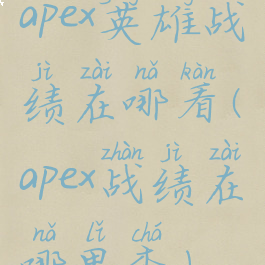 apex英雄战
jì zài nǎ kàn
绩在哪看(
zhàn jì zài
apex战绩在
nǎ lǐ chá
哪里查)